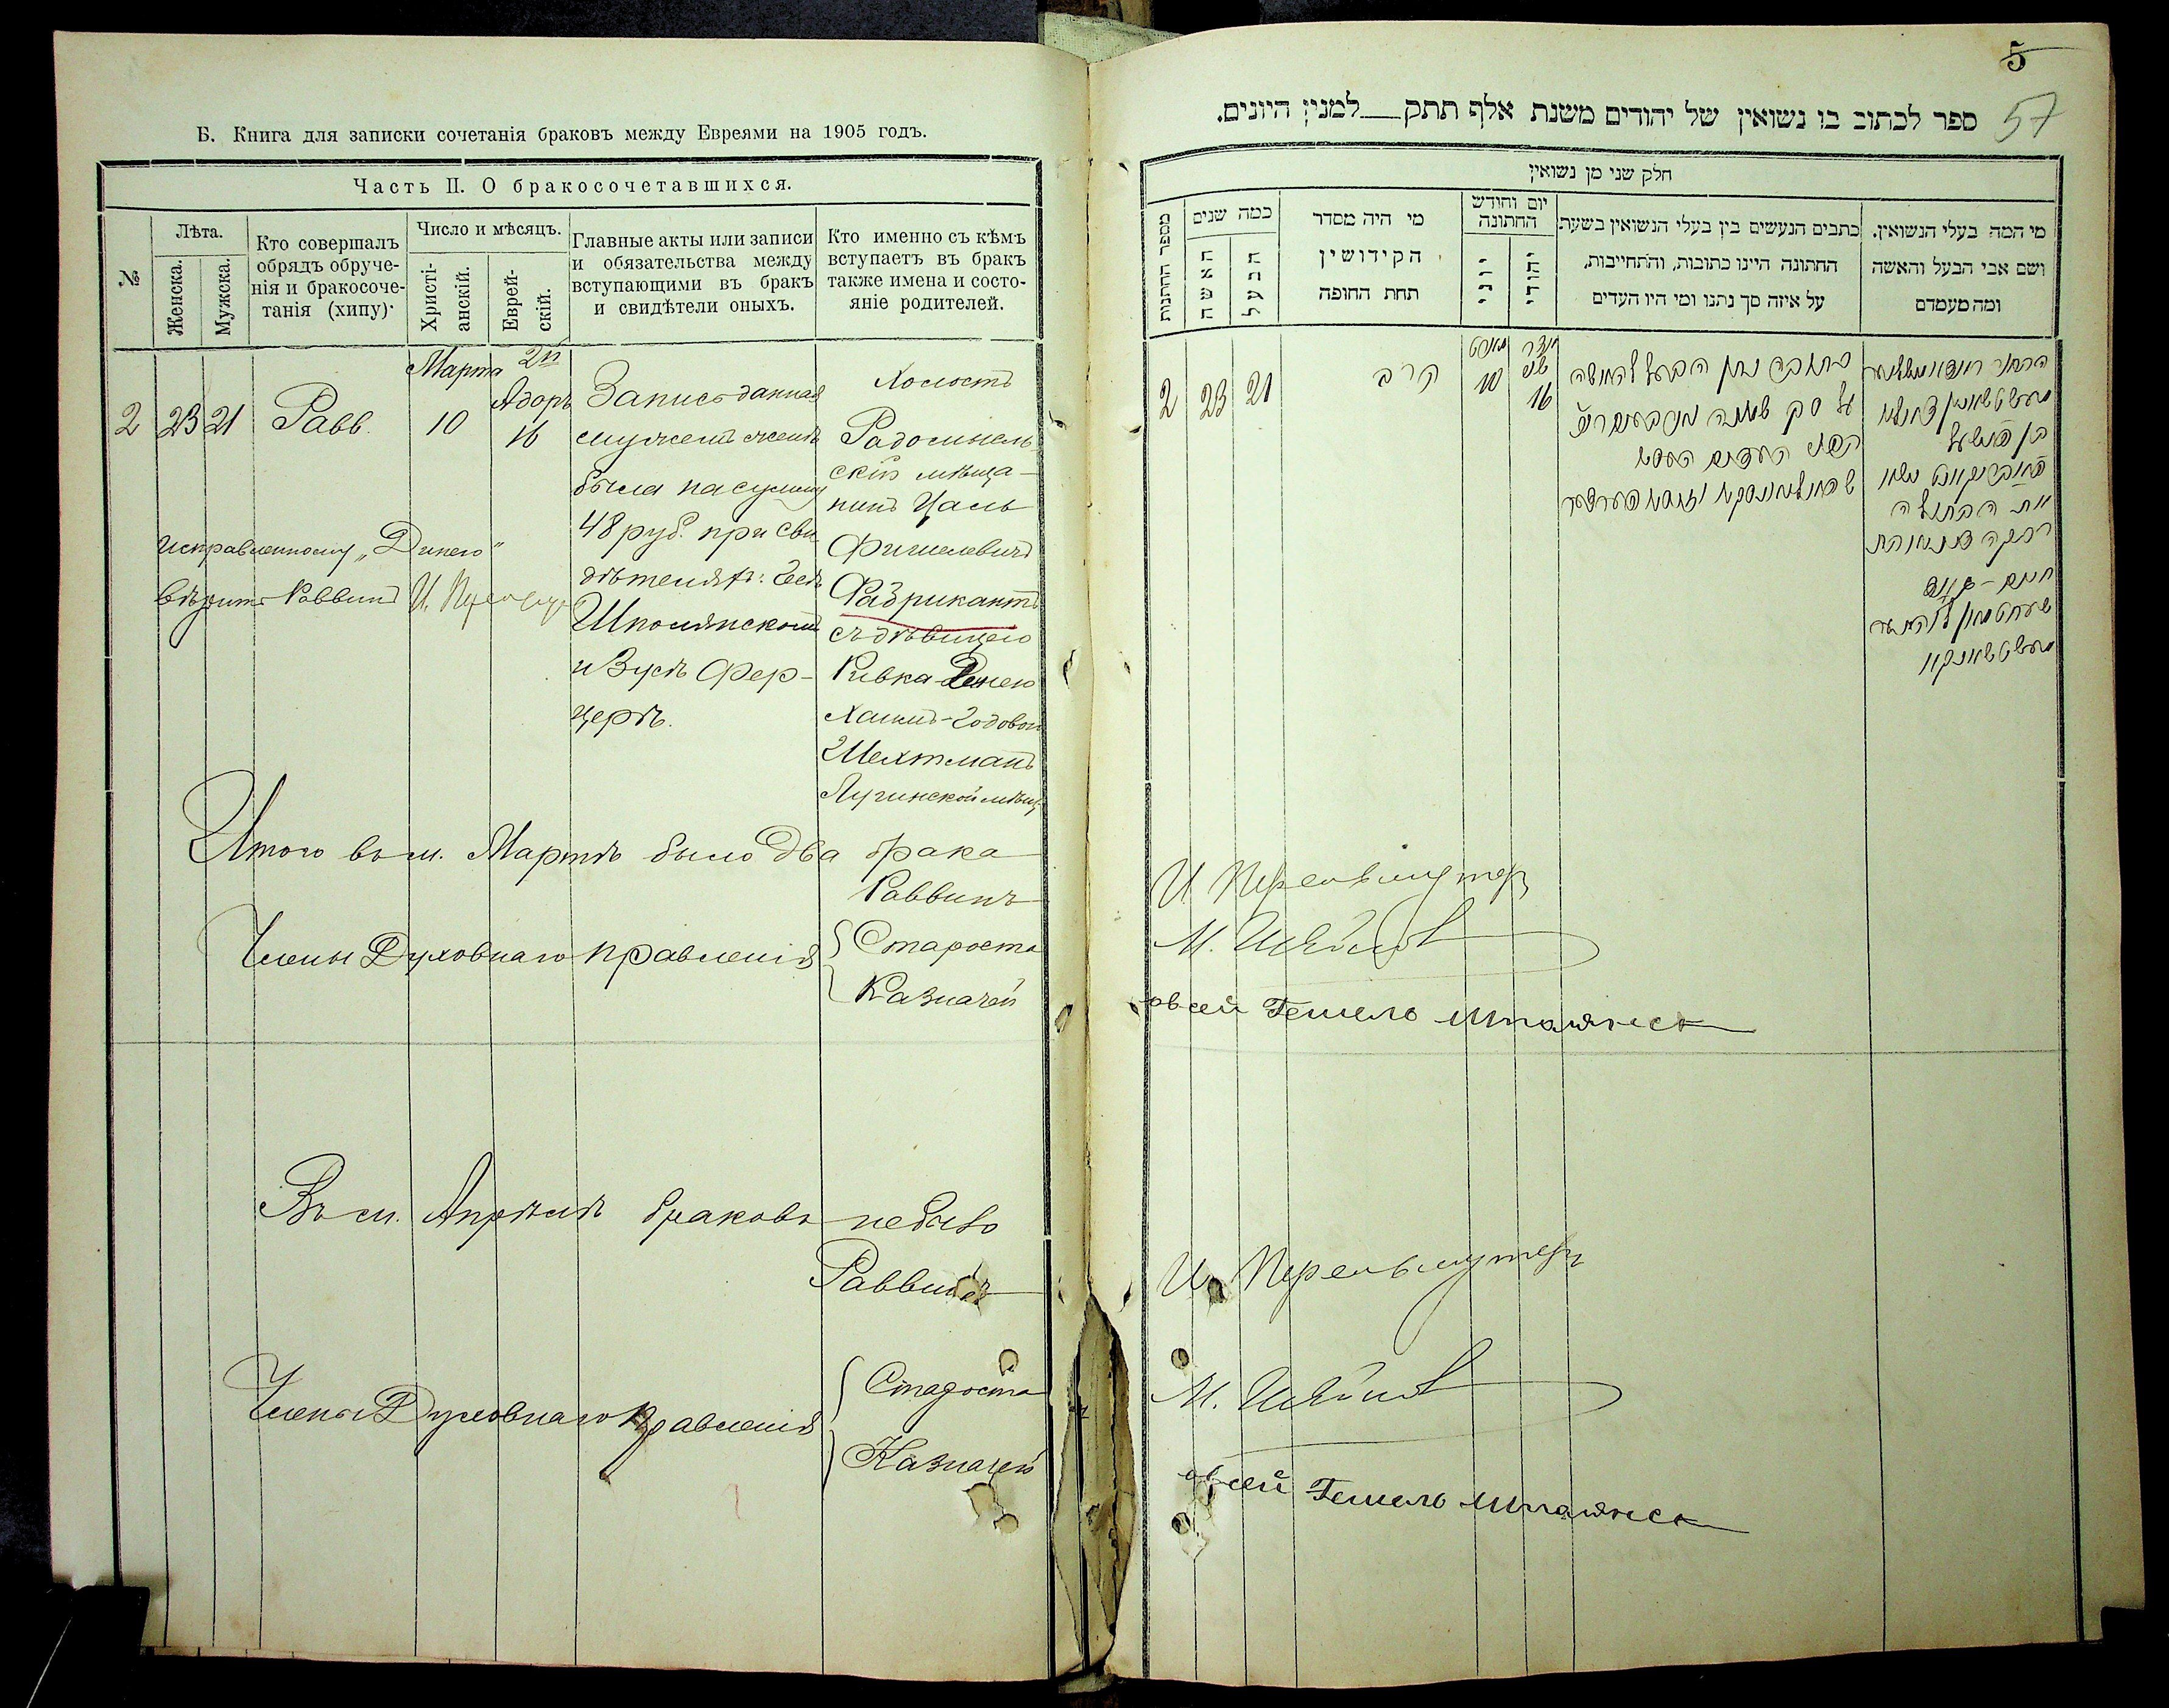 Б. Книга для записки сочетанія браковъ между Евреями на 1905 годъ.
Часть II. О бракосочетавшихся.
№
Лѣта.
Женска.
Мужска.
Кто совершалъ
обрядъ обруче-
нія и бракосоче-
танія (хипу)
Число и мѣсяцъ.
Христі-
анскій.
Еврей-
скій.
Главные акты или записи
и обязательства между
вступающими въ бракъ
и свидѣтели оныхъ.
Кто именно съ кѣмъ
вступаетъ въ бракъ
также имена и состо-
яніе родителей.
2
23
21
Равв.
Марта
10
2й
Адоръ
16
Запись данная
мужемъ женѣ
была на сумму
48 руб. при сви
дѣтеляхъ:
Шполянскомъ
и Зусъ Фер-
церъ.
Холостъ
Радомысль
скій мѣща-
нинъ Цаль
Фишелевичъ
Фабрикантъ
съ дѣвицею
Ривка-Динею
Хаимъ-Годовой
Шехтманъ
Лугинской мѣщ.
исправленному „Динею"
вѣрить Раввинъ И. Перельмутеръ
Итого въ м. Мартѣ было два брака
Раввинъ
Члены Духовнаго Правленія
Староста
Казначей
Въ м. Апрѣлѣ браковъ не было
Раввинъ
Члены Духовнаго Правленія
Староста
Казначей
5
57
ספר לכתוב בו נשואין של יהודים משנת אלף תתק למנין היונים.
חלק שני מן נשואין
מספר החתנות
כמה שנים
האשה
הבעל
מי היה מסדר
הקידושין
תחת החופה
יום וחודש
החתונה
יוני
יהודי
כתבים הנעשים בין בעלי הנשואין בשעת
החתונה היינו כתובות, והתחייבות,
על איזה סך נתנו ומי היו העדים
מי המה בעלי הנשואין.
ושם אבי הבעל והאשה
ומה מעמדם
2
23
21
הרב
מארט
10
אדר
שני
16
כתובה נתן הבעל להאשה
על סך שמנה וארבעים רו״כ
בן פישעל
פאבריקאנט נשא
את הבתולה
חיים
И Перельмутеръ
М. Шейнов
овсей Гешель Шполянск
И. Перельмутеръ
М. Шейнов
овсей Гешель Шполянск